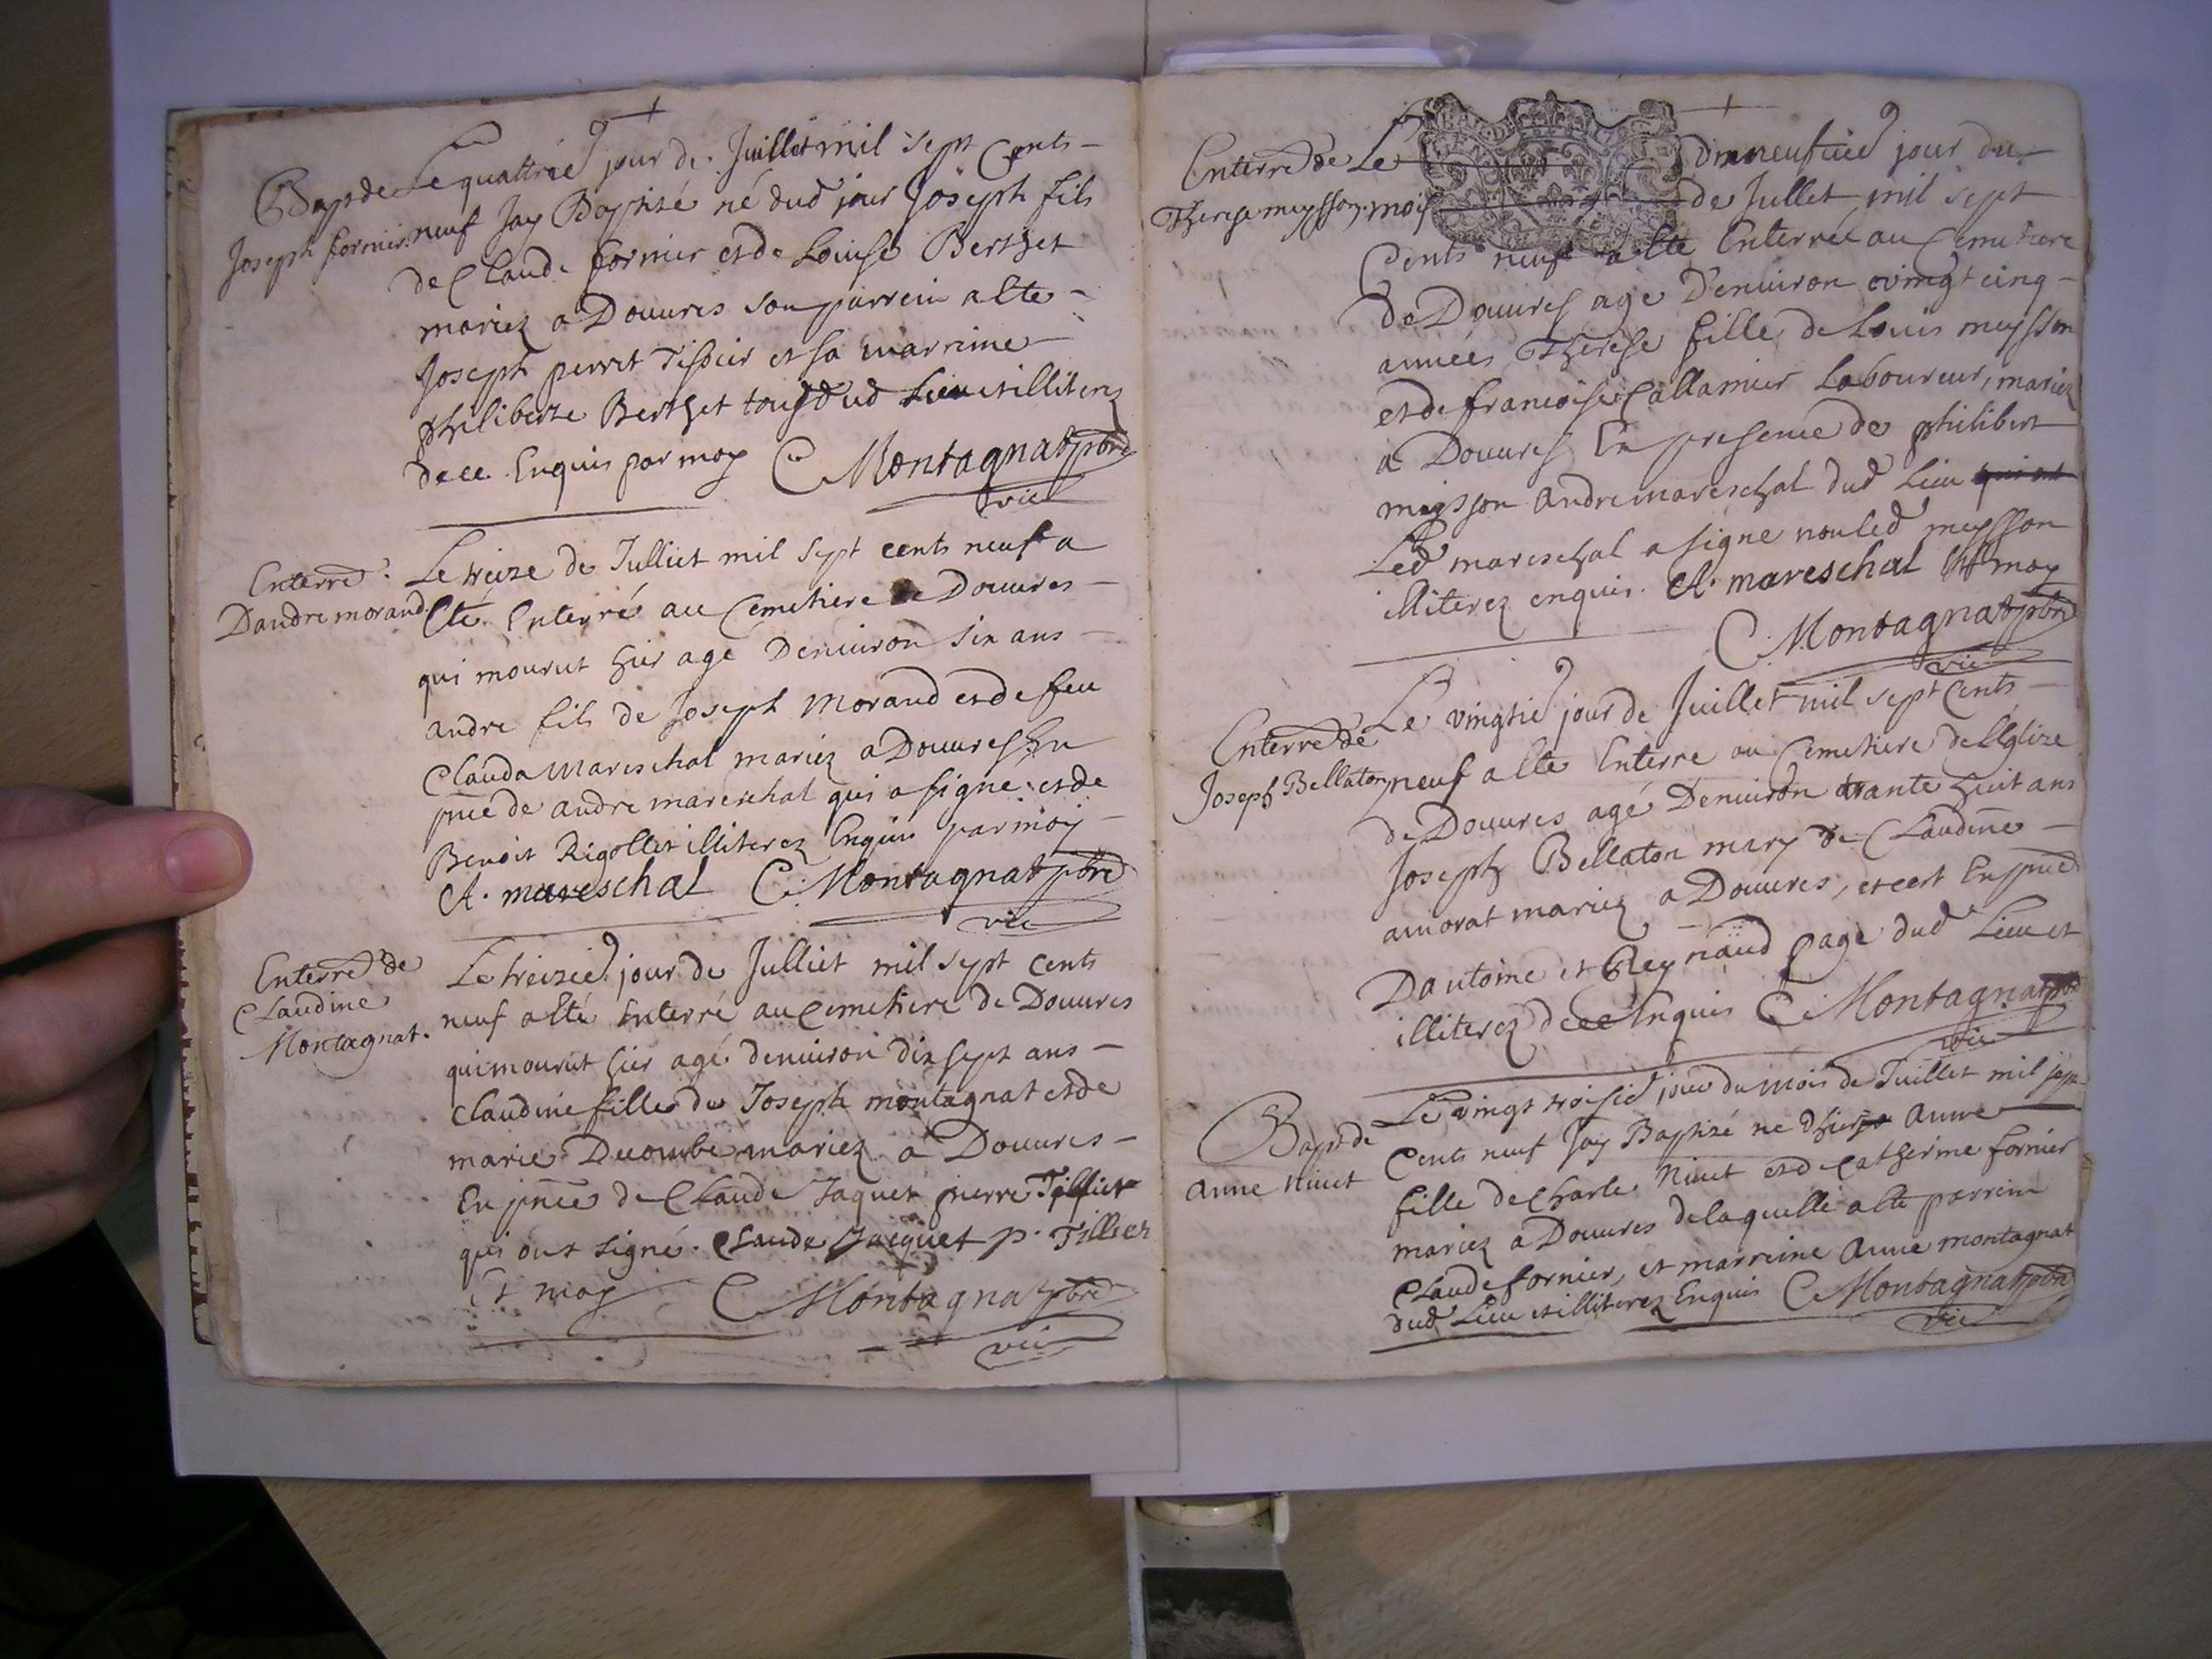 Bapt de
Joseph fornier
Le quattrie jour de Juillet mil sept Cents
neuf Jay Baptisé né dud jour Joseph fils
de Claude fornier et de Louise Berthet
mariez a Douvres son parrein a este
Joseph perret Tissier et sa marrine
philiberte Berthet tous dud Lieu et illiterez
de ce Enquis par moy C Montagnat pbre
vic
Enterre
Dandre morand
Le treize de Julliet mil sept cents neuf a
Esté Enterré au Cemetiere de Douvres
qui mourut hier agé Denviron six ans
andre fils de Joseph Morand et de feu
Clauda Mareschal mariez a Douvres En
pnce de andre mareschal qui a signe et de
Benoit Rigollet illiterez Enquis par moy
A. mareschal C. Montagnat pbre
vic
Enterre de
Claudine
Montagnat.
Le treizie jour de Julliet mil sept cents
neuf a Esté Enterré au Cemetiere de Douvres
qui mourut hier agé denviron dix sept ans
Claudine fille de Joseph montagnat et de
marie Ducombe mariez a Douvres
En pnce de Claude Jaquet pierre Tillier
qui ont signé. Claude Jacquet p. Tillier
Et moy C Montagnat pbre
vic
Enterre de
Therese meysson
Le dixneufvie jour du
mois de Jullet mil sept
Cents neuf a este Enterrée au Cemetiere
de Douvres age Denviron vingt cinq
années Therese fille de Louis meysson
et de francoise Callamier Laboureur, mariez
a Douvres En presence de philibert
meysson andre mareschal dud Lieu qui ont
Led mareschal a signe non led meysson
illiterez enquis. A. mareschal Et moy
C. Montagnat pbre
vic
Enterre de
Joseph Bellaton
Le vingtie jour de Juillet mil sept Cents
neuf a Este Enterre au Cemetiere de lEglize
de Douvres agé Denviron trante huit ans
Joseph Bellaton mary de Claudine
amorat mariez a Douvres, et cest En pnce
Dantoine et Reynaud page dud Lieu et
illiterez de ce Enquis C Montagnat pbre
vic
Bapt de
Anne Nivet
Le vingt troisie jour du mois de Juillet mil sept
Cents neuf Jay Baptizé ne dhier Anne
fille de Charle Nivet et de Catherine fornier
mariez a Douvres de laquelle a Esté parrein
Claude fornier, et marreine Anne montagnat
dud Lieu et illiterez Enquis C Montagnat pbre
vic